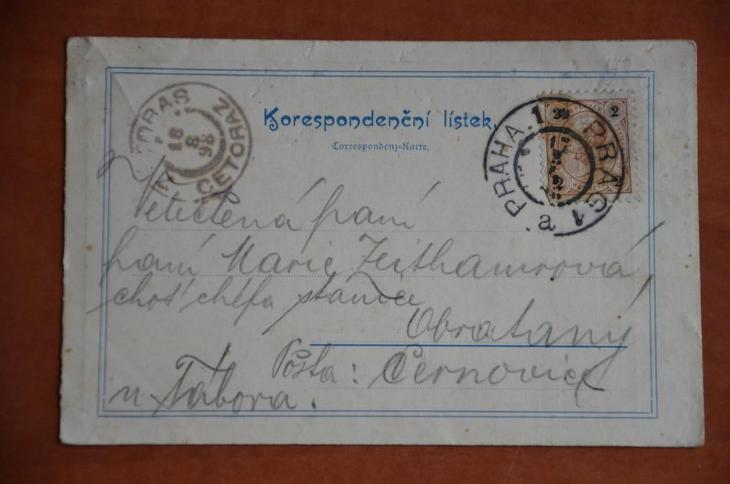 Korespondenční lístek.
Correspondenz-Karte.
CETORAZ
18
8
98
PRAHA. 1 PRAG 1
a
2
Veletctená paní
paní Marie Zeithamrová,
choť chéfa stanice
Obratany
Pošta: Černovice
u Tábora.